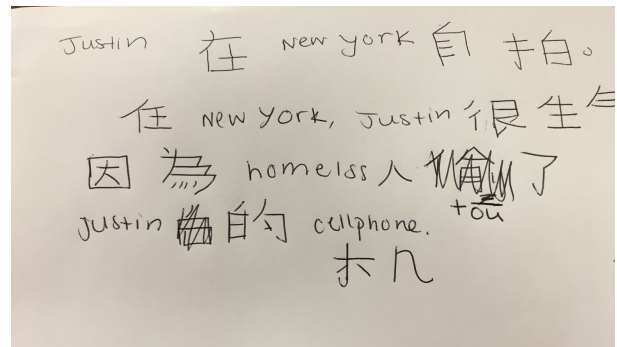 Justin 在 New york 自拍。
任 New York, Justin 很生
因為 homelss 人 了
tōu
Justin 的 cellphone.
机